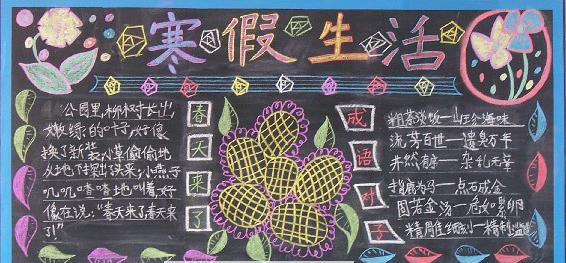 寒假生活
公园里,柳树长出
嫩绿的叶子,好像
换了新装,小草偷偷地
从地下探出头来,小燕子
叽叽喳喳地叫着,好
像在说:“春天来了春天来
了!”
春
天
来
了
成
语
对
子
粗茶淡饭——山珍海味
流芳百世——遗臭万年
井然有序——杂乱无章
指鹿为马——点石成金
固若金汤——危如累卵
精雕细刻——粗制滥造